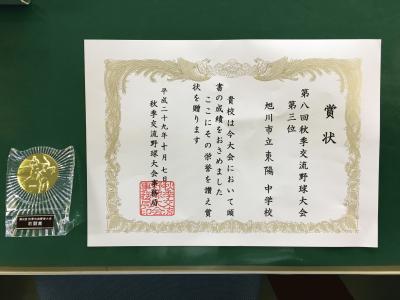 賞状
第八回秋季交流野球大会
第三位
旭川市立東陽中学校
貴校は今大会において頭
書の成績をおさめました
ここにその栄誉を讃え賞
状を贈ります
平成二十九年十月七日
秋季交流野球大会事務局